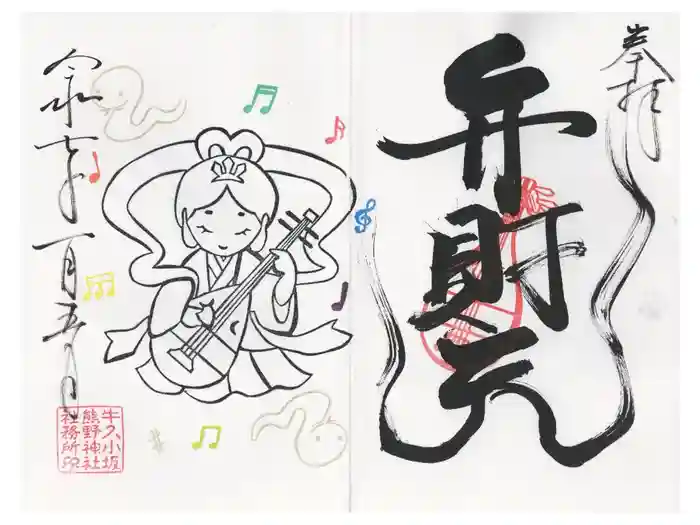 奉拝
弁財天
令和七年一月五日
牛久小坂
熊野神社
社務所印